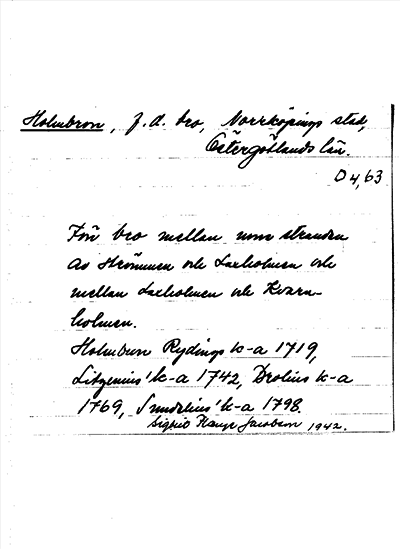 Holmbron, f.d. bro, Norrköpings stad,
Östergötlands län.
Ö 4,63
För bro mellan norra stranden
av Strömmen och Laxholmen och
mellan Laxholmen och Kvarn-
holmen.
Holmbron Rydings k-a 1719,
Litzenius' k-a 1742, Brolins k-a
1769, Sundelius' k-a 1798.
Sigrid Jacobson 1942.